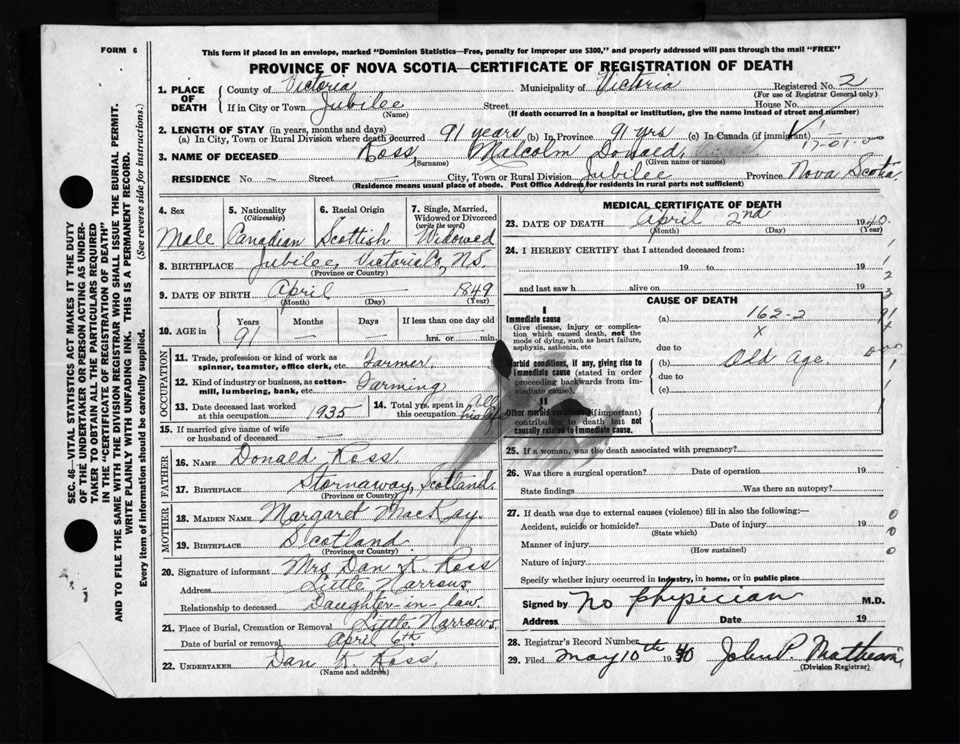 FORM 6
This form if placed in an envelope, marked "Dominion Statistics—Free, penalty for improper use $300," and properly addressed will pass through the mail "FREE"
PROVINCE OF NOVA SCOTIA—CERTIFICATE OF REGISTRATION OF DEATH
SEC. 46—VITAL STATISTICS ACT MAKES IT THE DUTY
OF THE UNDERTAKER OR PERSON ACTING AS UNDER-
TAKER TO OBTAIN ALL THE PARTICULARS REQUIRED
IN THE "CERTIFICATE OF REGISTRATION OF DEATH"
AND TO FILE THE SAME WITH THE DIVISION REGISTRAR WHO SHALL ISSUE THE BURIAL PERMIT.
WRITE PLAINLY WITH UNFADING INK. THIS IS A PERMANENT RECORD.
Every item of information should be carefully supplied. (See reverse side for instructions.)
1. PLACE OF DEATH
County of Victoria Municipality of Victoria Registered No. 2
(For use of Registrar General only)
If in City or Town Jubilee Street House No.
(Name) (If death occurred in a hospital or institution, give the name instead of street and number)
2. LENGTH OF STAY (in years, months and days)
(a) In City, Town or Rural Division where death occurred 91 years (b) In Province 91 yrs (c) In Canada (if immigrant)
17-01-0
3. NAME OF DECEASED Ross, Malcolm Donald,
(Surname) (Given name or names)
RESIDENCE No. — Street — City, Town or Rural Division Jubilee Province Nova Scotia.
(Residence means usual place of abode. Post Office Address for residents in rural parts not sufficient)
4. Sex
Male
5. Nationality
(Citizenship)
Canadian
6. Racial Origin
Scottish
7. Single, Married,
Widowed or Divorced
(write the word)
Widowed
8. BIRTHPLACE Jubilee, Victoria Co, N.S.
(Province or Country)
9. DATE OF BIRTH April — 1849
(Month) (Day) (Year)
10. AGE in Years Months Days If less than one day old
91 — — hrs. or min.
OCCUPATION
11. Trade, profession or kind of work as
spinner, teamster, office clerk, etc. Farmer.
12. Kind of industry or business, as cotton-
mill, lumbering, bank, etc. Farming
13. Date deceased last worked
at this occupation. 1935
14. Total yrs. spent in
this occupation. all his life
15. If married give name of wife
or husband of deceased —
FATHER
16. NAME Donald Ross.
17. BIRTHPLACE Stornaway, Scotland.
(Province or Country)
MOTHER
18. MAIDEN NAME Margaret MacKay.
19. BIRTHPLACE Scotland
(Province or Country)
20. Signature of informant Mrs Dan K. Ross
Address Little Narrows
Relationship to deceased Daughter-in-law.
21. Place of Burial, Cremation or Removal Little Narrows.
Date of burial or removal April 6th.
22. UNDERTAKER Dan K. Ross.
(Name and address)
MEDICAL CERTIFICATE OF DEATH
23. DATE OF DEATH April 2nd 1940.
(Month) (Day) (Year)
24. I HEREBY CERTIFY that I attended deceased from:
19 to 19
and last saw h alive on 19
CAUSE OF DEATH
I
Immediate cause
Give disease, injury or complica-
tion which caused death, not the
mode of dying, such as heart failure,
asphyxia, asthenia, etc
(a) 162-2
x
due to
Morbid conditions, if any, giving rise to
immediate cause (stated in order
proceeding backwards from im-
mediate cause).
(b) Old Age.
due to
(c)
II
Other morbid conditions (if important)
contributing to death but not
causally related to immediate cause.
25. If a woman, was the death associated with pregnancy?
26. Was there a surgical operation? Date of operation 19
State findings Was there an autopsy?
27. If death was due to external causes (violence) fill in also the following:—
Accident, suicide or homicide? Date of injury 19
(State which)
Manner of injury
(How sustained)
Nature of injury
Specify whether injury occurred in industry, in home, or in public place
Signed by No Physician M.D.
Address Date 19
28. Registrar's Record Number
29. Filed May 10th 1940 John P. Matheson
(Division Registrar)